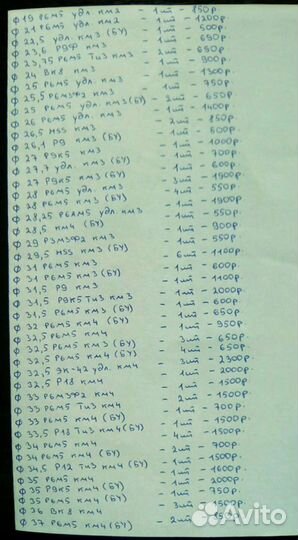 ф 19 Р6М5 удл. км2 - 1шт - 850р.
ф 21 Р6М5 удл. км2 - 1шт - 1200р
ф 22,5 удл. км3 (БУ) - 1шт - 500р
ф 23,6 Р9Ф км3 - 1шт - 650р
ф 23,75 Р6М5 Тиз км3 - 2шт - 650р
ф 24 ВК8 км3 - 1шт - 900р
ф 25 Р6М5 удл. км3 - 1шт - 1300р
ф 25,5 Р6М3Ф2 км3 - 1шт - 750р
ф 25 Р6М5 удл. км3 (БУ) - 1шт - 650р
ф 26 Р6М5 удл. км3 - 1шт - 1400р
ф 26,5 HSS км3 - 2шт - 850р
ф 26,1 Р9 км3 (БУ) - 1шт - 600р
ф 27 Р9К5 км3 - 1шт - 1000р
ф 27,7 удл. км3 (БУ) - 1шт - 700р
ф 27 Р9К5 км3 (БУ) - 1шт - 600р
ф 28 Р6М5 удл. км3 - 3шт - 1900р
ф 28 Р6М5 км3 (БУ) - 4шт - 550р
ф 28,25 Р6АМ5 удл. км3 - 1шт - 1900р
ф 28,5 км4 (БУ) - 1шт - 550р
ф 29 Р3М3Ф2 км3 - 1шт - 900р
ф 29,5 HSS км3 (БУ) - 1шт - 550р
ф 31 Р6М5 км3 - 6шт - 1100р
ф 31 Р6М5 км3 (БУ) - 1шт - 600р
ф 31,5 Р9 км3 - 1шт - 1100р
ф 31,5 Р9К5 Тиз км3 - 1шт - 2000р
ф 31,5 Р6М5 км3 (БУ) - 1шт - 600р
ф 32 Р6М5 км4 (БУ) - 1шт - 650р
ф 32,5 Р6М5 км4 - 1шт - 950р
ф 32,5 Р6М5 км3 (БУ) - 3шт - 650р
ф 32,5 Р6М5 км4 (БУ) - 4шт - 650р
ф 32,5 ЭК-42 удл. км4 - 3шт - 2300р
ф 32,5 Р18 км4 - 1шт - 2000р
ф 33 Р6М3Ф2 км4 - 1шт - 1500р
ф 33 Р6М5 Тиз км4 - 2шт - 1500р
ф 33 Р6М5 км4 (БУ) - 1шт - 700р
ф 33,5 Р18 Тиз км4 (БУ) - 1шт - 1500р
ф 34 Р6М5 км4 - 4шт - 1500р
ф 34 Р6М5 км4 (БУ) - 2шт - 700р
ф 34,5 Р12 Тиз км4 (БУ) - 1шт - 1500р
ф 35 Р6М5 км4 - 1шт - 1600р
ф 35 Р9К5 км4 - 1шт - 2000р
ф 35 Р6М5 км4 (БУ) - 1шт - 750р
ф 36 ВК8 км4 - 3шт - 1500р
ф 37 Р6М5 км4 (БУ) - 2шт
Avito